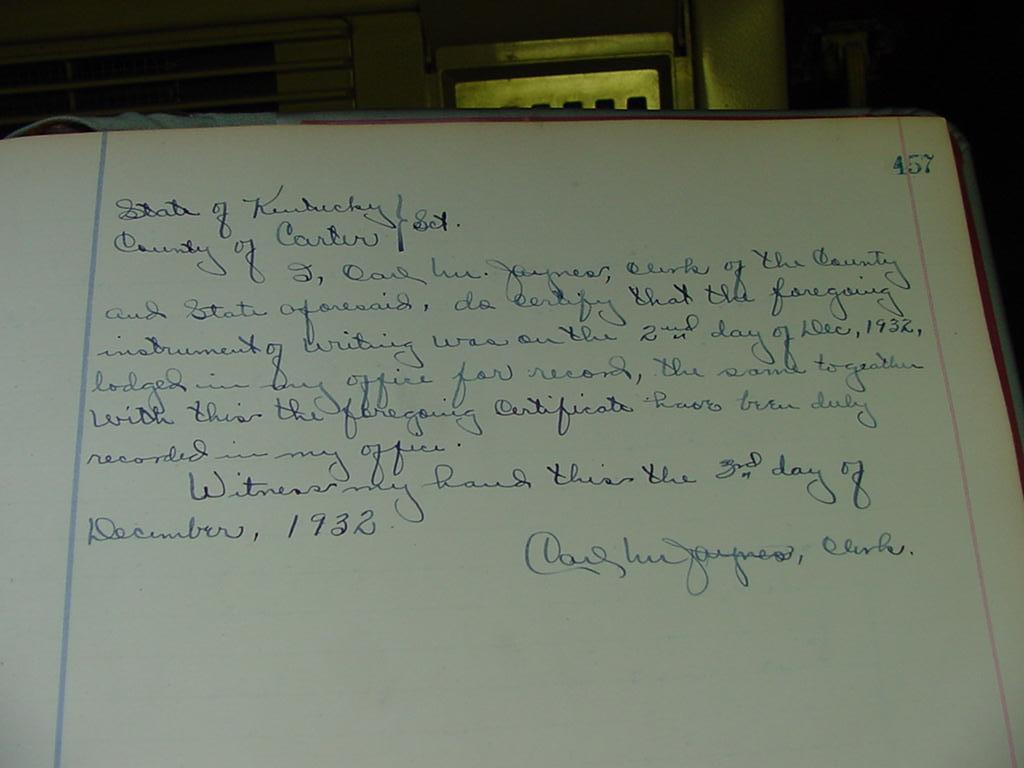 457
State of Kentucky } Sct.
County of Carter
I, Carl M. Jaynes, Clerk of the County
and State aforesaid, do certify that the foregoing
instrument of writing was on the 2nd day of Dec, 1932,
lodged in my office for record, the same togeather
with this the foregoing Certificate have been duly
recorded in my office.
Witness my hand this the 3rd day of
December, 1932.
Carl M Jaynes, Clerk.